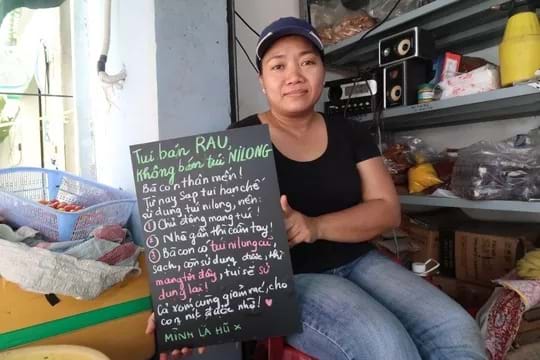 Tui bán RAU,
không bán túi NILONG
Bà con thân mến!
Từ nay Sạp tui hạn chế
sử dụng túi nilong, nên:
① Chủ động mang túi!
② Nhà gần thì cầm tay!
③ Bà con có túi nilong cũ,
sạch, còn sử dụng được, thì
mang tới đây, tui sẽ sử
dụng lại!
Cả xóm cùng giảm rác, cho
con nít ở đợc nhờ!
MÌNH LÀ HŨ x